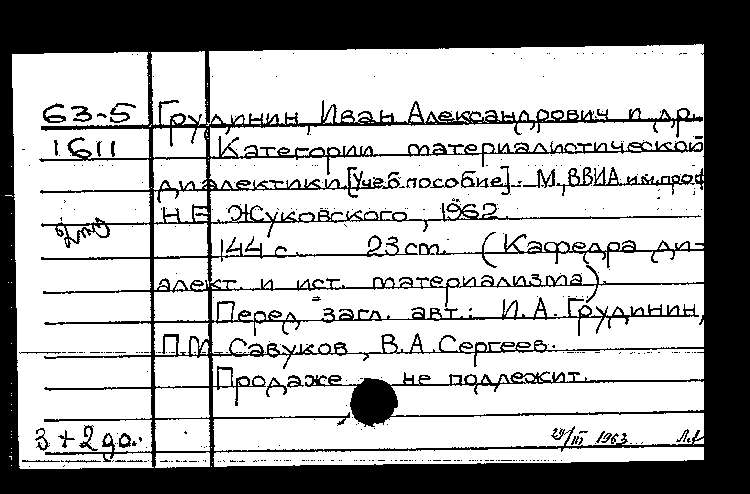 63-5 Грудинин, Иван Александрович и др.
1611 Категории материалистической
диалектики. [Учеб. пособие]. М., ВВИА им. проф
Н.Е. Жуковского, 1962.
144 с. 23 ст. (Кафедра ди-
алект. и ист. материализма).
Перед загл. авт.: И.А. Грудинин,
П.М. Савуков, В.А. Сергеев.
Продаже не подлежит.
3 + 2 до.. 29/III 1963